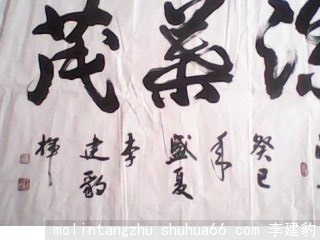 深葉茂
癸巳
年
盛夏
李
建豹
揮
molintangzhu.shuhua66.com 李建豹